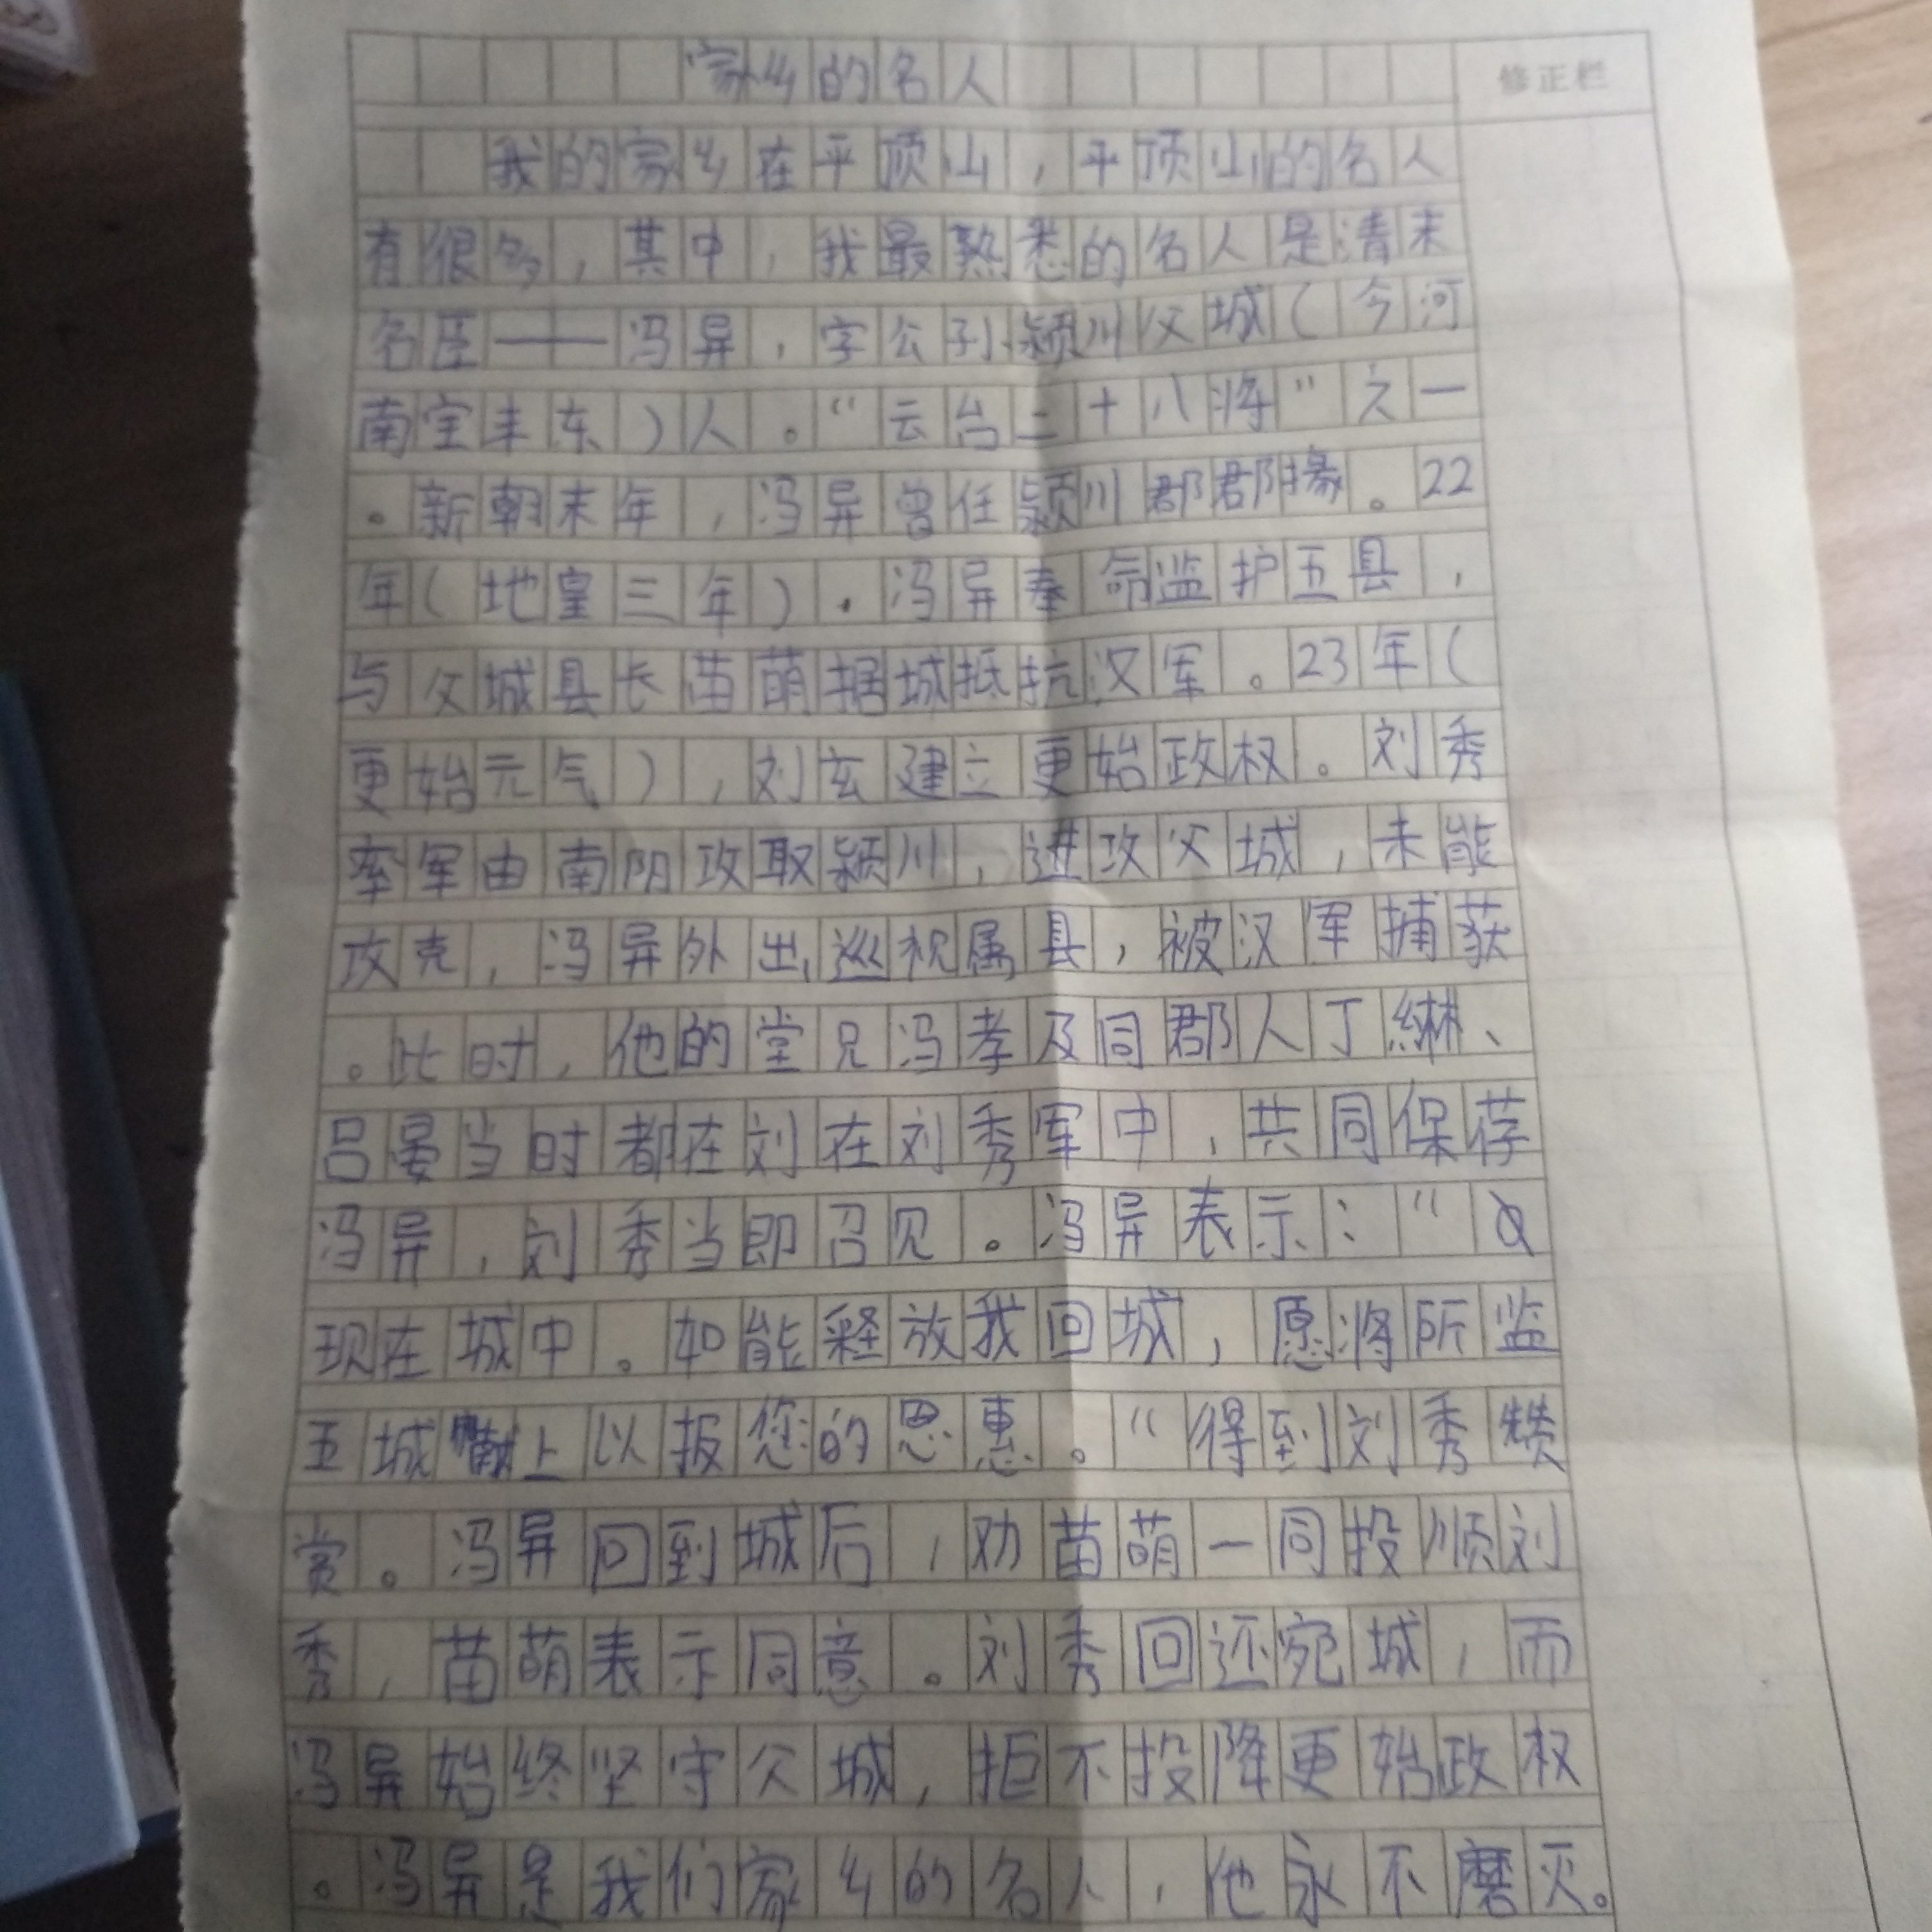 家乡的名人
修正栏
我的家乡在平顶山，平顶山的名人
有很多，其中，我最熟悉的名人是清末
名臣——冯异，字公孙颍川父城（今河
南宝丰东）人。“云台二十八将”之一
。新朝末年，冯异曾任颍川郡郡掾。22
年（地皇三年）．冯异奉命监护五县，
与父城县长苗萌据城抵抗汉军。23年（
更始元气），刘玄建立更始政权。刘秀
率军由南阴攻取颍川，进攻父城，未能
攻克，冯异外出巡视属县，被汉军捕获
。此时，他的堂兄冯孝及同郡人丁綝、
吕晏当时都在刘在刘秀军中，共同保荐
冯异，刘秀当即召见。冯异表示：“
现在城中。如能释放我回城，愿将所监
五城献上以报您的恩惠。“得到刘秀赞
赏。冯异回到城后，劝苗萌一同投顺刘
秀，苗萌表示同意。刘秀回还宛城，而
冯异始终坚守父城，拒不投降更始政权
。冯异是我们家乡的名人，他永不磨灭。